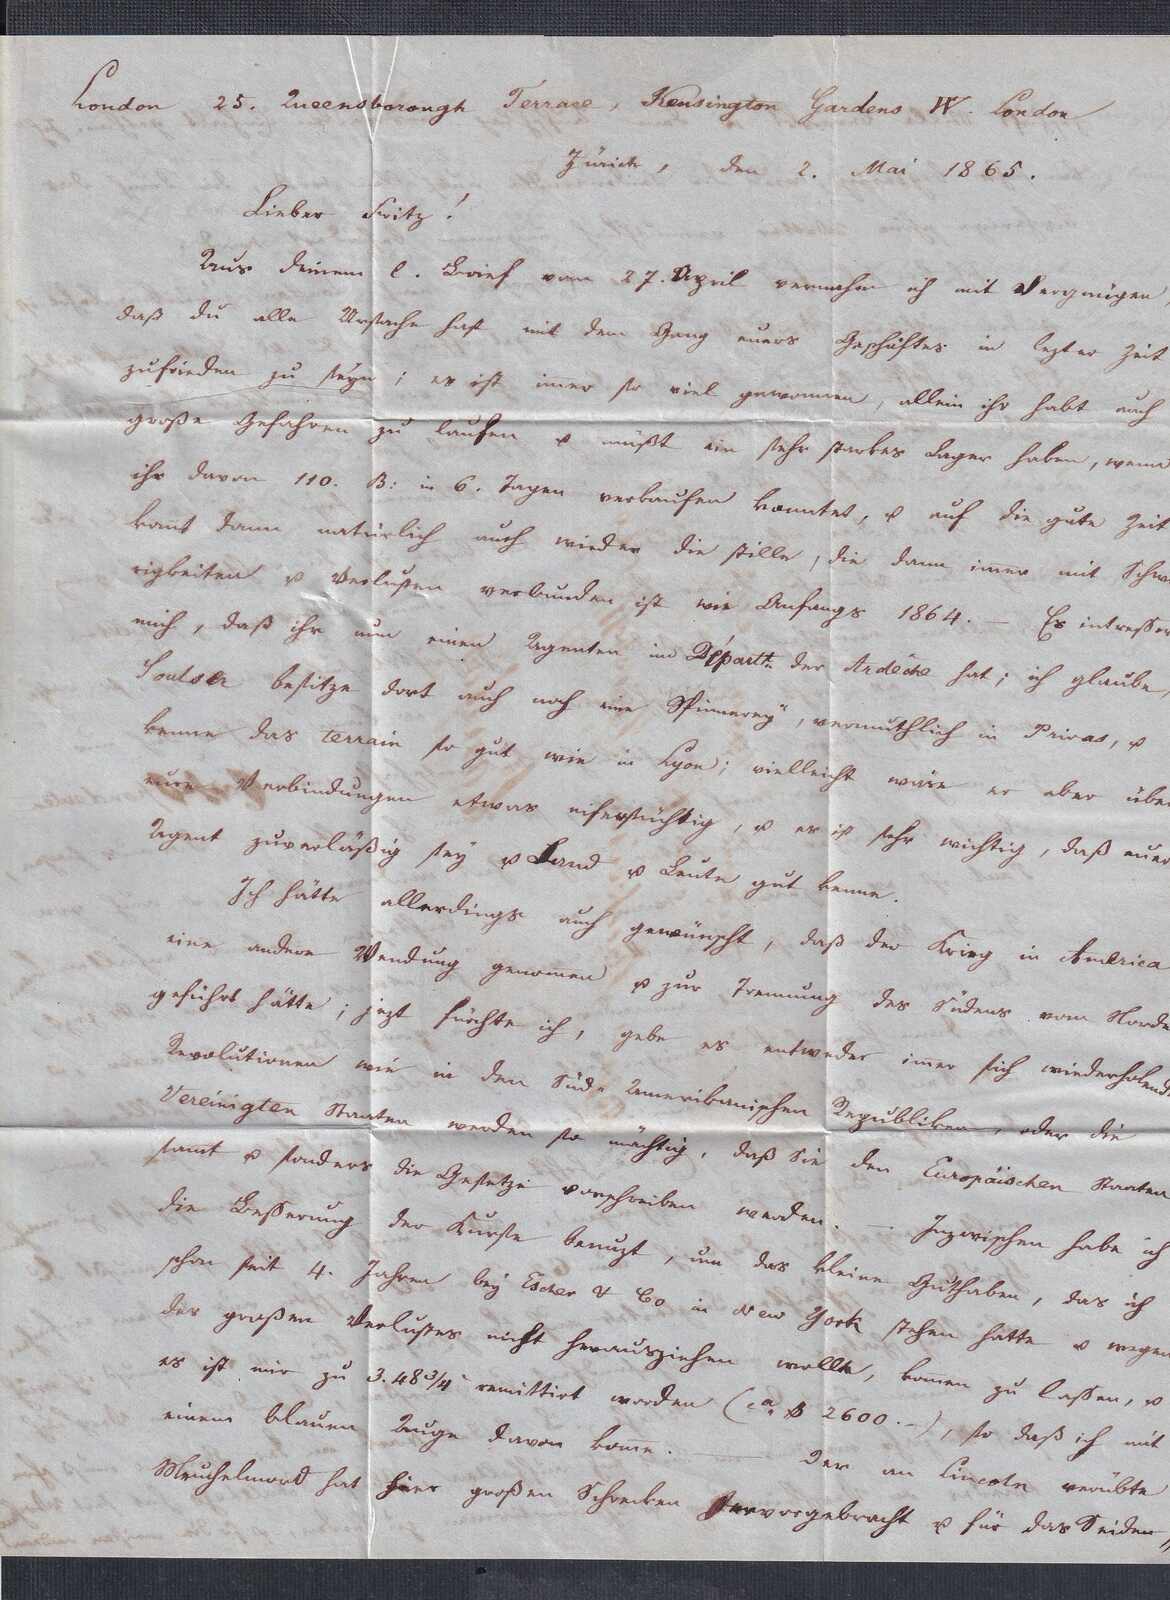 London 25. Queensborough Terrace, Kensington Gardens W. London
Zürich, den 2. Mai 1865.
Lieber Fritz!
Aus deinem l. Brief vom 27. April vernahm ich mit Vergnügen,
daß du alle Ursache hast mit dem Gang euers Geschäftes in lezter Zeit
zufrieden zu seyn; es ist im̅er so viel gewonnen, allein ihr habt auch
große Gefahren zu laufen & müßt ein sehr starkes Lager haben, wenn
ihr davon 110. B: in 6. Tagen verkaufen konntet, & auf die gute Zeit
kom̅t dann natürlich auch wieder die stille, die dann im̅er mit Schwie
rigkeiten & Verlusten verbunden ist wie Anfangs 1864. — Es intressir
mich, daß ihr nun einen Agenten im Départt. der Ardèche hat; ich glaube,
besitze dort auch noch eine Spinnerey, vermuthlich in Privas, &
kenne das terrain so gut wie in Lyon; vielleicht wäre er aber über
eure Verbindungen etwas eifersüchtig, & es ist sehr wichtig, daß euer
Agent zuverläßig sey & Land & Leute gut kenne.
Ich hätte allerdings auch gewünscht, daß der Krieg in America
eine andere Wendung genom̅en & zur Trennung des Südens vom Norde
geführt hätte; jezt fürchte ich, gebe es entweder im̅er sich wiederholende
Revolutionen wie in den Süd-Amerikanischen Republiken, oder die
Vereinigten Staaten werden so mächtig, daß Sie den Europäischen Staaten
samt & sonders die Gesetze vorschreiben werden. — Inzwischen habe ich
die Besserung der Kurse benuzt, um das kleine Guthaben, das ich
schon seit 4. Jahren bey Escher & Co in New York stehen hatte & wegen
des großen Verlustes nicht herausziehen wollte, kom̅en zu lassen, &
es ist mir zu 3.48¾ remittirt worden (ca. $ 2600.—), so daß ich mit
einem blauen Auge davon kom̅e. — Der an Lincoln verübte
Meuchelmord hat hier großen Schrecken hervorgebracht & für das Seiden„